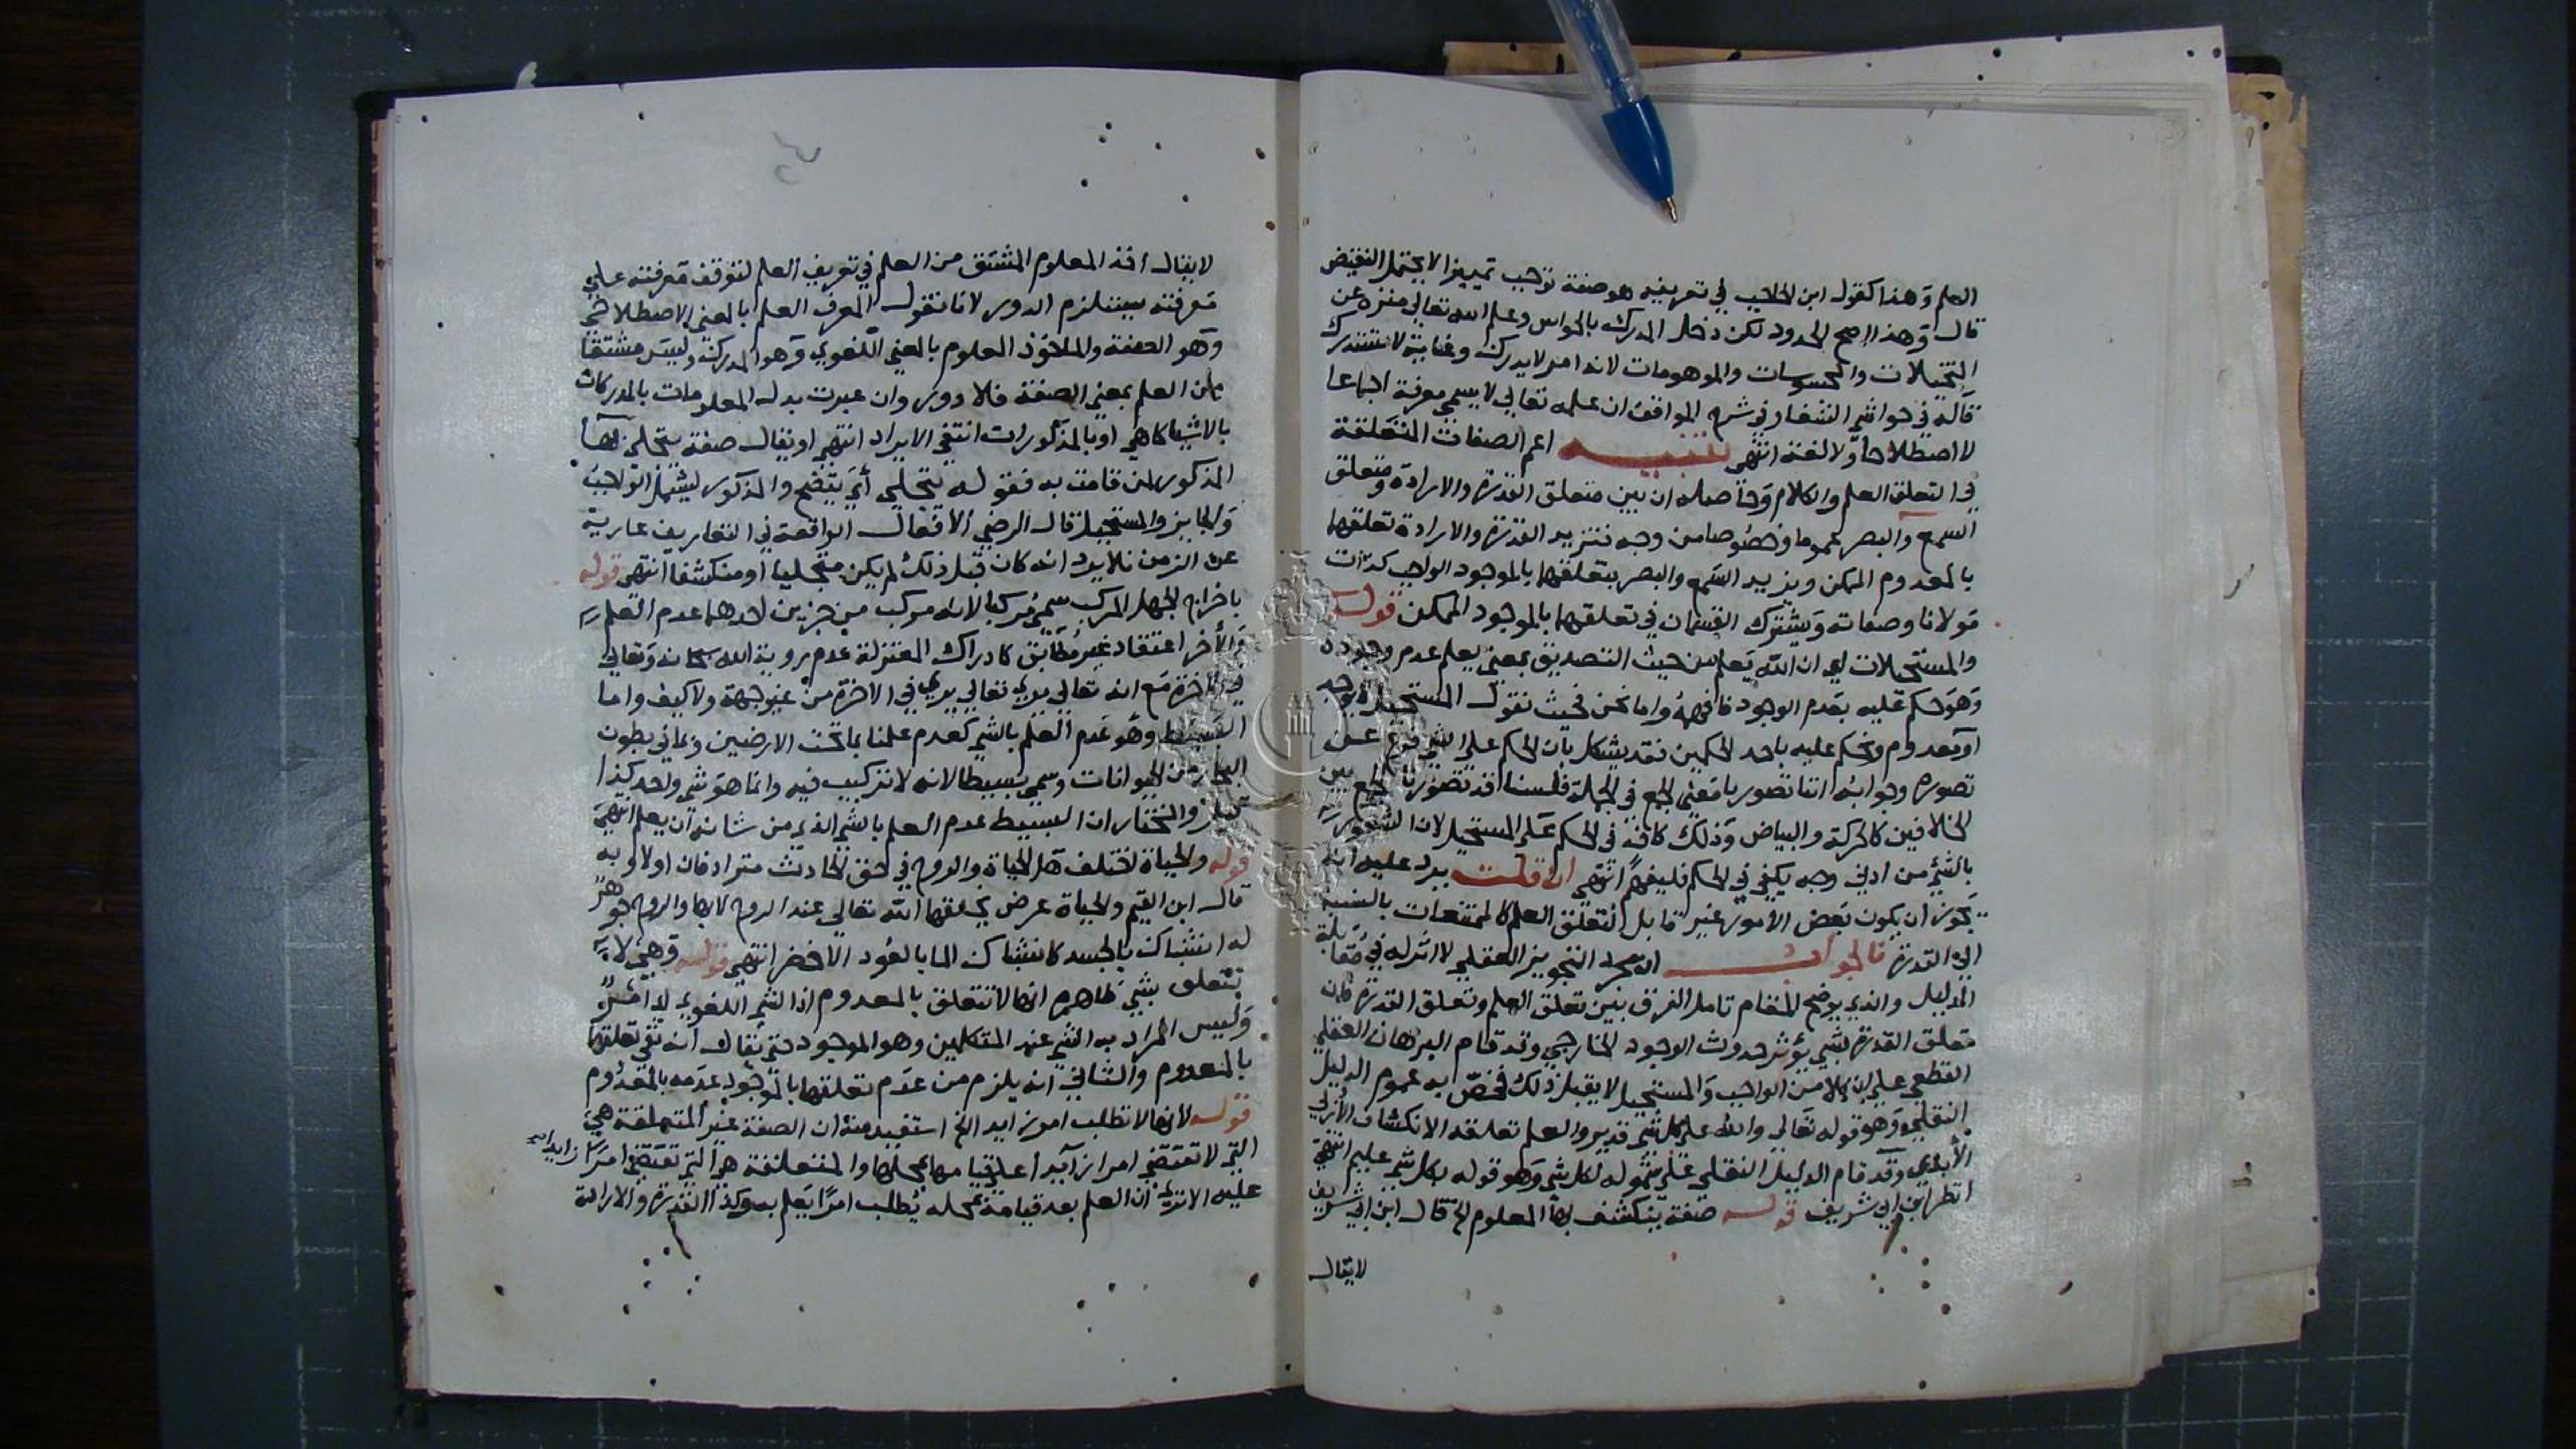 العلم وهذا كقول ابن الحاجب في تعريفه هو صفة توجب تمييزا لا يحتمل النقيض
قال وهذا اصح الحدود لكن دخل المدرك بالحواس وعلم الله تعالى منزه عن
التخيلات والمحسوسات والموهومات لانه امر لا يدرك وغايته لا تستدرك
قاله في حواشي الشفا وفي شرح المواقف ان علمه تعالي لا يسمي معرفة اجماعا
لا اصطلاحا ولا لغة انتهى تنبيه اعم الصفات المتعلقة
في التعلق العلم والكلام وحاصله ان بين متعلق القدرة والارادة ومتعلق
السمع والبصر عموما وخصوصا من وجه فتزيد القدرة والارادة تعلقهما
بالمعدوم الممكن ويزيد السمع والبصر بتعلقهما بالموجود الواجب كذات
مولانا وصفاته ويشترك القسمان في تعلقهما بالموجود الممكن قوله
والمستحيلات اي ان الله يعلم من حيث التصديق بمعنى يعلم عدم وجوده
وهو حكم عليه بعدم الوجود فافهمه واما نحن فحيث نقول المستحيل
او معدوم ونحكم عليه باحد الحكمين فقد يشكل بان الحكم على الشي فرع عن
تصوره وجوابه اننا تصورنا معنى الجمع في الجملة فلسنا قد تصورنا الجمع بين
الخلافين كالحركة والبياض وذلك كاف في الحكم على المستحيل لان الشعور
بالشي من ادني وجه يكفي في الحكم فليفهم انتهى ان قلت يرد عليه انه
يجوز ان يكون بعض الامور غير قابل لتعلق العلم كالممتنعات بالنسبة
الي القدرة فالجواب ان مجرد التجويز العقلي لا اثر له في مقابلة
الدليل والذي يوضح المقام تامل الفرق بين تعلق العلم وتعلق القدرة فان
تعلق القدرة بشي يؤثر حدوث الوجود الخارجي وقد قام البرهان العقلي
القطعي على ان كلا من الواجب والمستحيل لا يقبل ذلك فخص به عموم الدليل
النقلي وهو قوله تعالي والله على كل شي قدير والعلم تعلقه الانكشاف الازلي
الابدي وقد قام الدليل النقلي على شموله لكل شي وهو قوله بكل شي عليم انتهى
انظر ابن ابي شريف قوله صفة ينكشف بها المعلوم الخ قال ابن ابي شريف
لا يقال
لا يقال اخذ المعلوم المشتق من العلم في تعريف العلم لتوقف معرفته علي
معرفته يستلزم الدور لانا نقول المعرف العلم بالمعنى الاصطلاحي
وهو الصفة والماخوذ المعلوم بالمعنى اللغوي وهو المدرك وليس مشتقا
من العلم بمعنى الصفة فلا دور وان عبرت بدل المعلومات بالمدركات
بالاشيا كما هي او بالمذكورات انتفي الايراد انتهى او يقال صفة يتجلي بها
المذكور لمن قامت به فقوله يتجلي أي يتضح والمذكور ليشمل الواجب
والجايز والمستحيل قال الرضي الافعال الواقعة في التعاريف عارية
عن الزمن فلا يرد انه كان قبل ذلك لم يكن متجليا او منكشفا انتهى قوله
باخراج الجهل المركب سمي مركبا لانه مركب من جزين احدهما عدم العلم
والأخر اعتقاد غير مطابق كادراك المعتزلة عدم روية الله سبحانه وتعالي
في الاخرة مع انه تعالي يري تعالي يري في الاخرة من غير جهة ولا كيف واما
البسيط وهو عدم العلم بالشي كعدم علمنا بما تحت الارضين وبما في بطون
البحار من الحيوانات وسمي بسيطا لانه لا تركيب فيه وانما هو شي واحد كذا
قيل والمختار ان البسيط عدم العلم بالشي الذي من شانه ان يعلم انتهى
قوله والحياة اختلف هل الحياة والروح في حق الحادث مترادفان اولا وبه
قال ابن القيم والحياة عرض يخلقها الله تعالي عند الروح لا بها والروح جوهر
له اشتباك بالجسد كاشتباك الما بالعود الاخضر انتهى قوله وهي لا
تتعلق بشي ظاهره انها لا تتعلق بالمعدوم اذ الشي اللغوي
وليس المراد به الشي عند المتكلمين وهو الموجود حتى يقال انه نفي تعلقها
بالمعدوم والثاني انه يلزم من عدم تعلقها بالموجود عدمه بالمعدوم
قوله لانها لا تطلب امرا زايد الخ استفيد منه ان الصفة غير المتعلقة هي
التي لا تقتضي امرا زايدا علي قيامها بمحلها والمتعلقة هي التي تقتضي امرا زايدا
عليه الا ترى ان العلم بعد قيامه بمحله يطلب امرا يعلم به وكذا القدرة والارادة